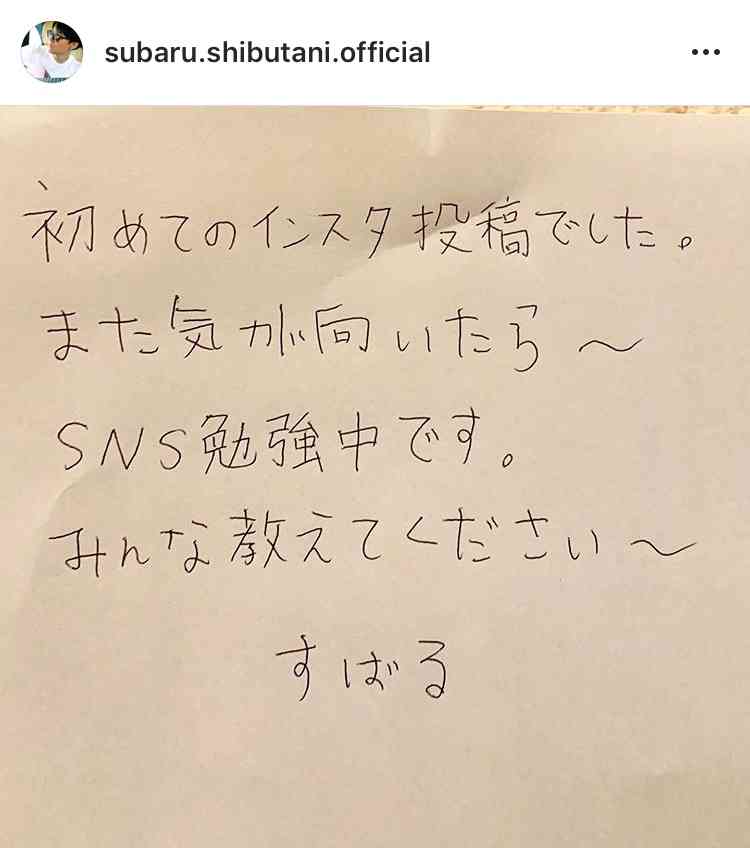 subaru.shibutani.official
初めてのインスタ投稿でした。
また気が向いたら〜
SNS勉強中です。
みんな教えてください〜
すばる